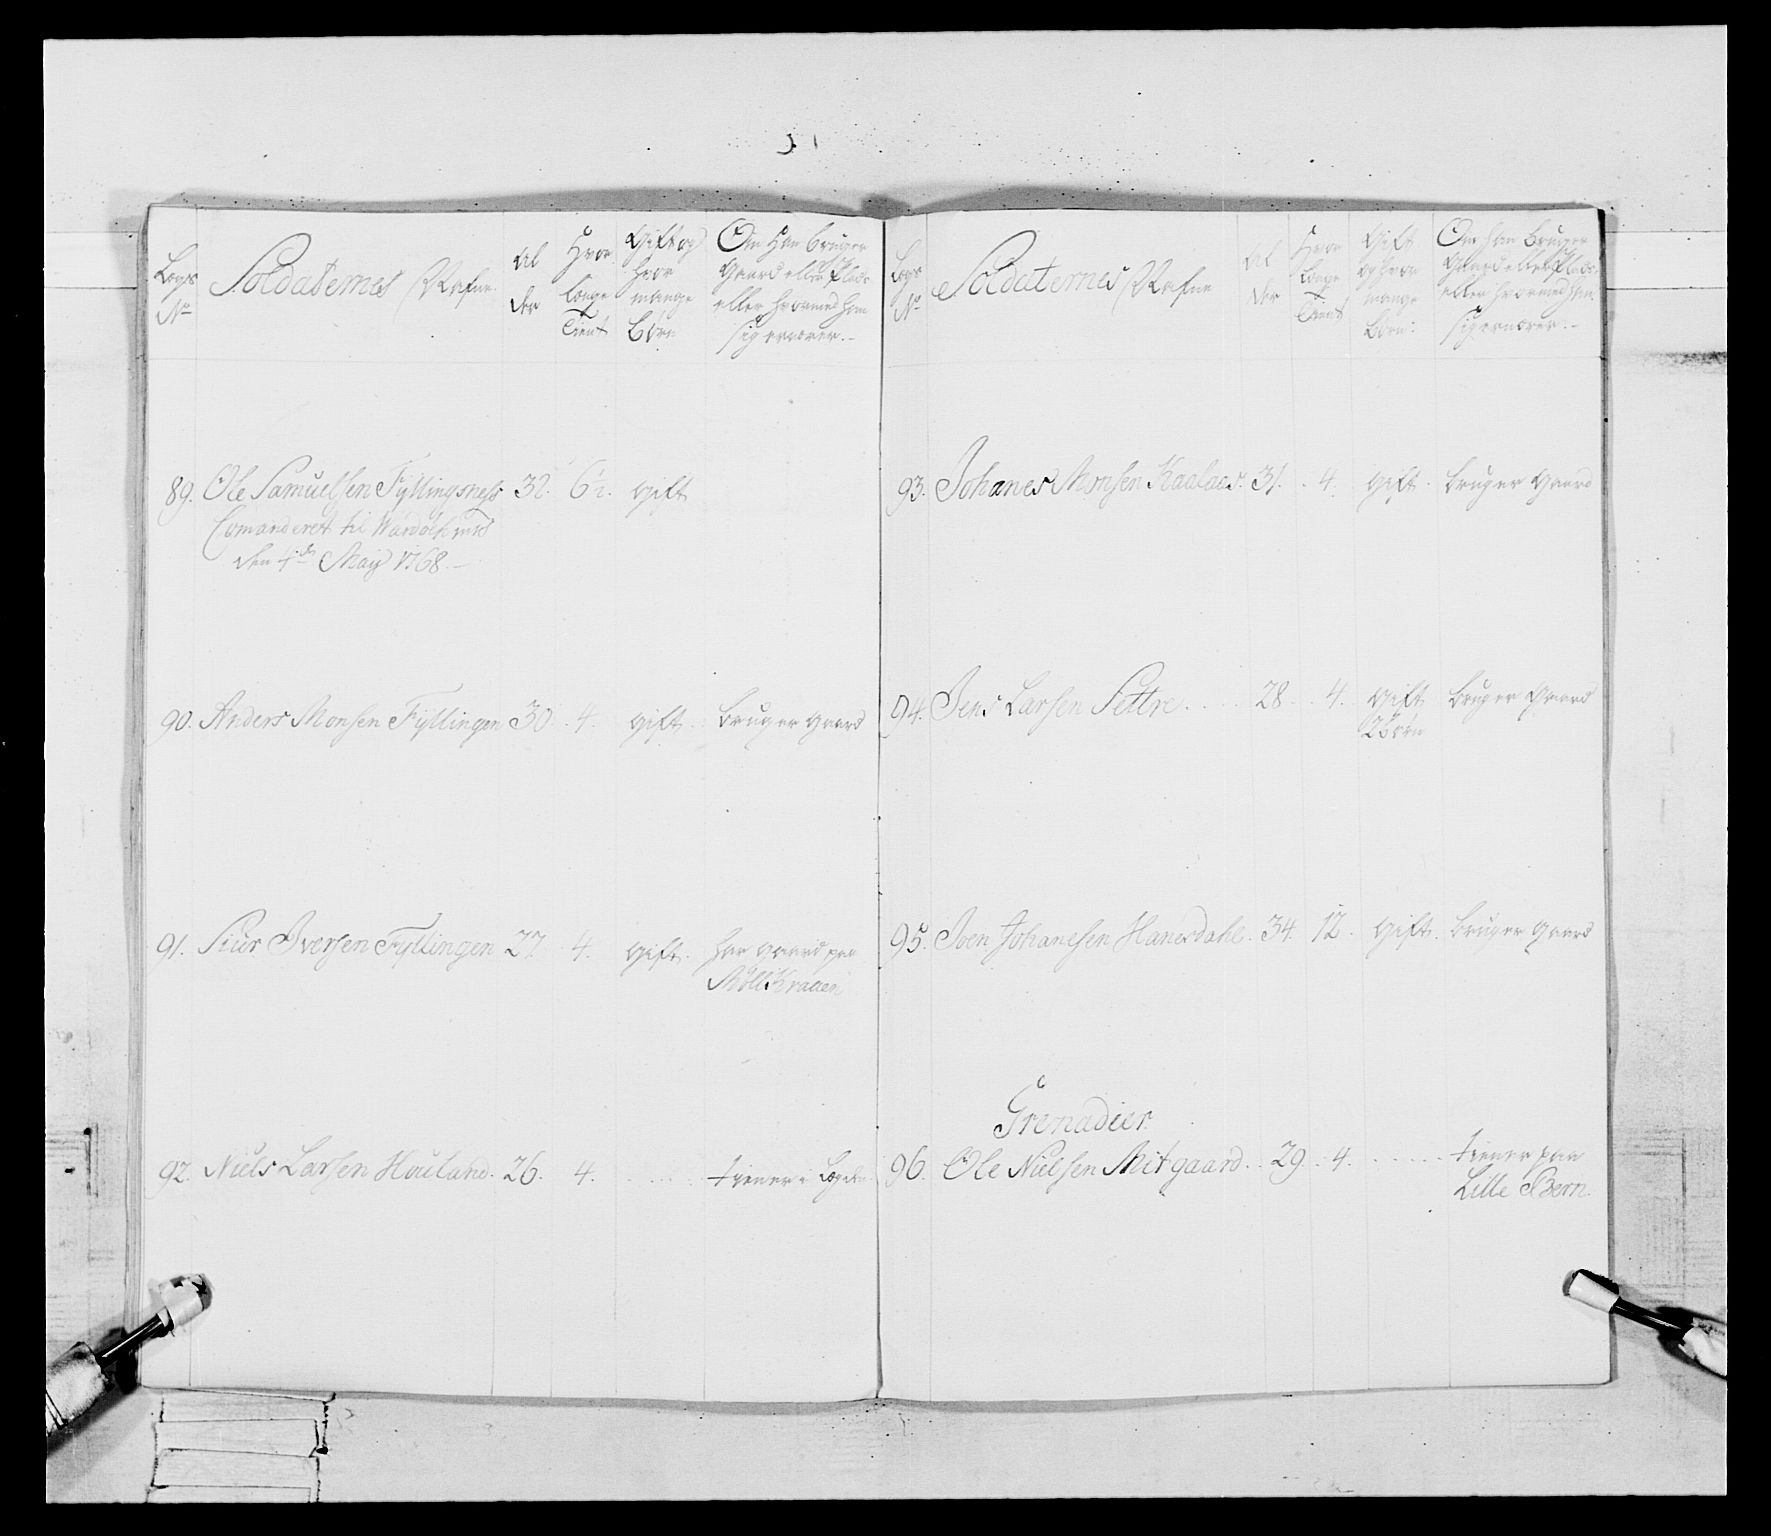 Lægs No
Soldaternes Nafne
Al der
Hvor længe Tient
Gift og hvor mange Børn
Om Han bruger Gaard eller Plads eller hvormed han sig ernærer.
89. Ole Samuelsen Fyllingsness 32. 6½. gift
Comanderet til Wardøehuus
den 4de Maij 1768.
90. Anders Monsen Fyllingen 30. 4. gift. bruger gaard
91. Siur Iversen Fyllingen 27. 4. gift. har gaard paa
Møll Kraaen
92. Niels Larsen Houland. 26. 4. tiener i Lægden
Lægs No
Soldaternes Nafne
Al der
Hvor længe Tient
Gift og hvor mange Børn:
Om Han bruger Gaard eller Plads eller hvormed han sig ernærer.
93. Johanes Monsen Kaalaas. 31. 4. gift. bruger gaard
94. Jens Larsen Settre. 28. 4. gift bruger gaard
2 børn
95. Joen Johanesen Hanesdahl. 34. 12. gift. bruger gaard
Grenadeer.
96. Ole Nielsen Mitgaard. 29. 4. tiener paa
Lille Bern.